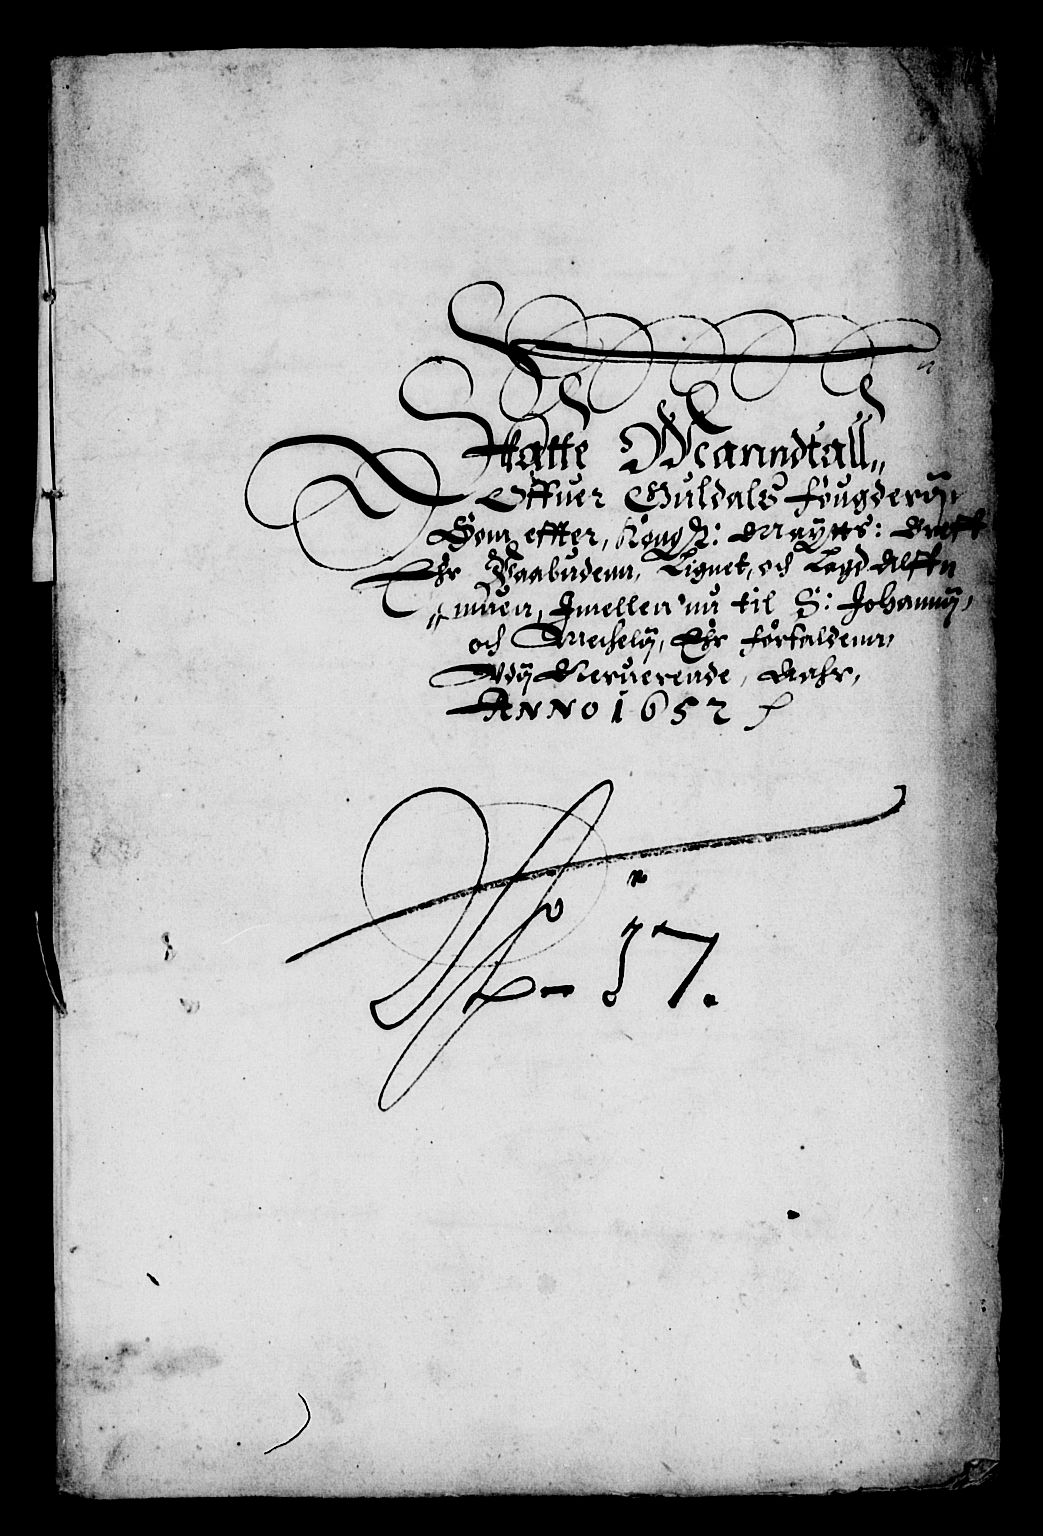 Skatte Manndtall,,
Offuer Guldals fougderÿ,
Som effter, Kong H: Maÿtts: Breff
Ehr Paabudenn, Lignet, och Lagd
muen, Jmellen nu til S: Johannÿ,
och Michelÿ, Ehr forfaldenn,
Vdÿ Neruerende, Aahr,
ANNO 1652
No- 37.